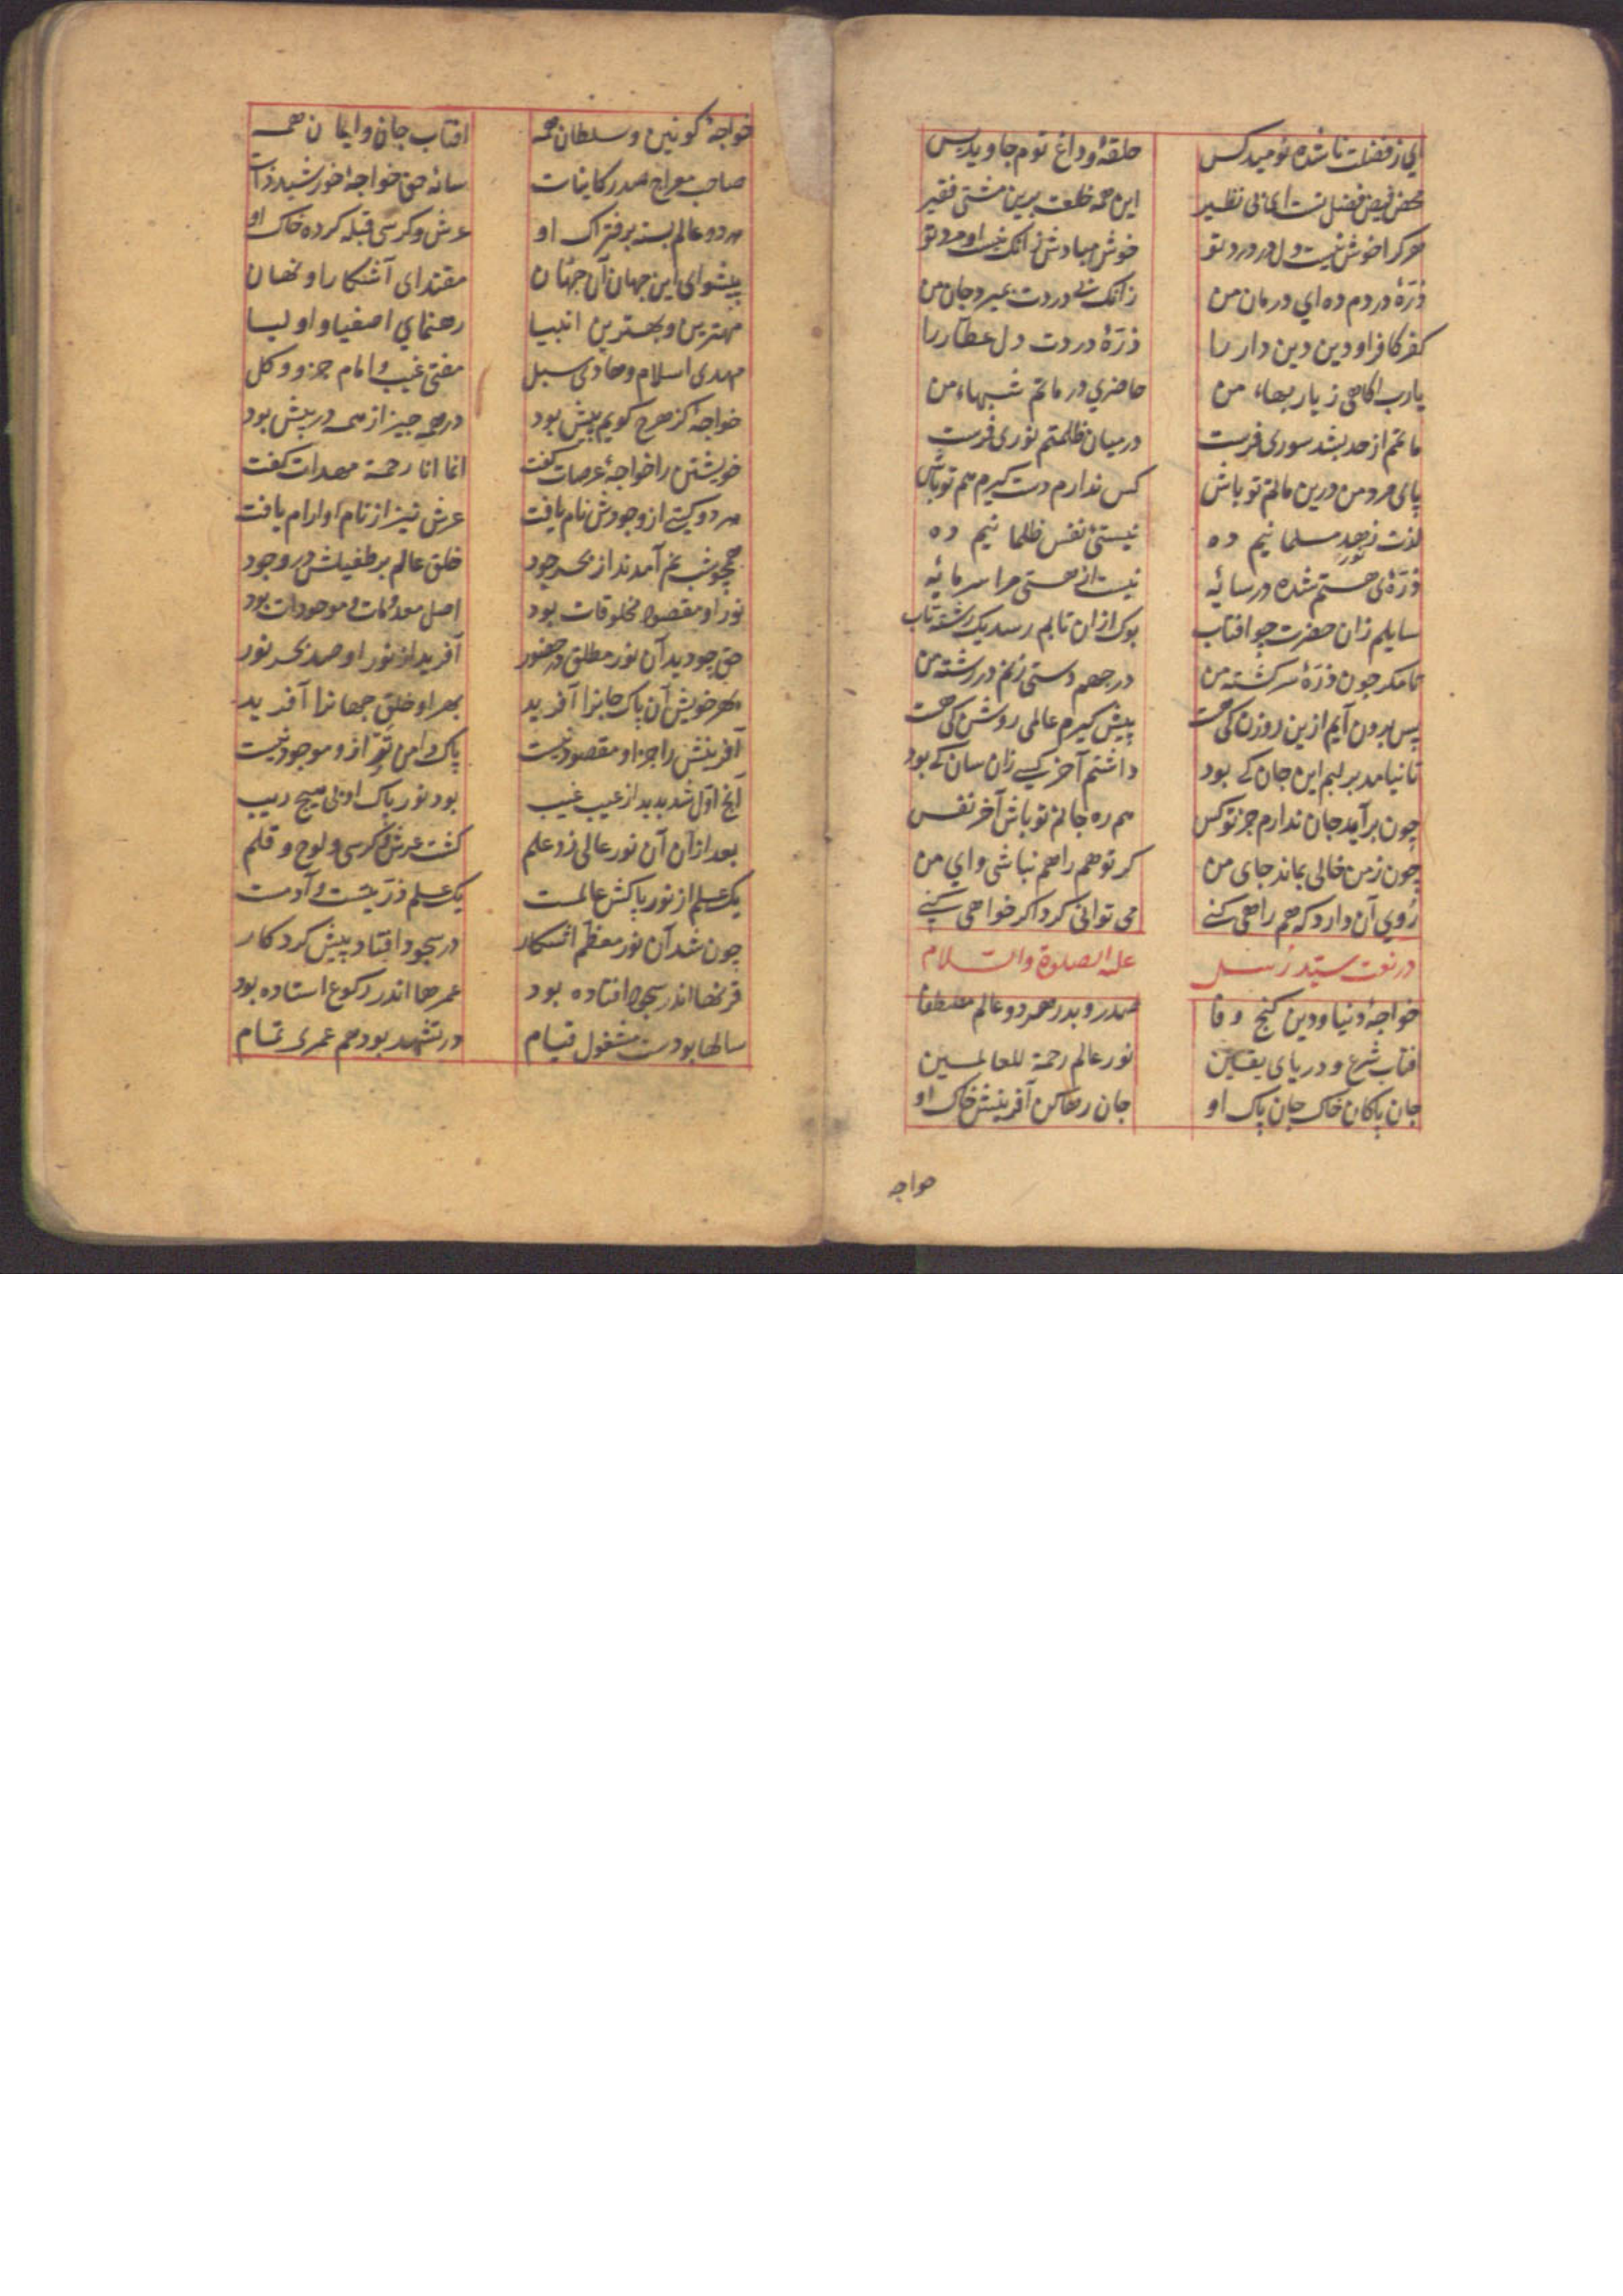 ای ز فضلت ناشده نومید کس حلقهٔ و داغ توم جاوید بس
هرکرا خوش نیست دل در درد تو خوش مبادش زانک نیست او مرد تو
ذرّهٔ دردم ده ای درمان من زانک بی دردت بمیرد جان من
کفر کافر او دین دین دار را ذرّهٔ دردت دل عطّار را
یارب آکاهی ز یاربهاء من حاضری در ماتم شبهاء من
ماتمم از حد بشد سوری فرست درمیان ظلمتم نوری فرست
پای مرد من درین ماتم تو باش کس ندارم دست کیرم هم تو باش
لذت نور مسلمانیم ده نیستیٔ نفس ظلمانیم ده
ذرّهٔ هستم شده در سایهٔ نیست از هستی مرا سرمایهٔ
سایلم زان حضرت چو افتاب بوک ازان تابم رسد یک رشته تاب
تا مکر چون ذرّهٔ سرکشته من درجهم دستی زنم در رشته من
پس برون آیم ازین روزن که هست پیش کیرم عالمی روشن که هست
تا نیامد بر لبم این جان که بود داشتم آخر کسی زان سان که بود
چون برآید جان ندارم جز تو کس هم ره جانم تو باش آخر نفس
چون ز من خالی بماند جای من کر تو همراهم نباشی وای من
روی آن دارد که همراهی کنی می توانی کرد اکر خواهی کنی
در نعت سیّد رسل علیه الصلوة والسلام
خواجهٔ دنیا و دین کنج وفا صدر و بدر هر دو عالم مصطفا
افتاب شرع و دریای یقین نور عالم رحمة للعالمین
جان پاکان خاک جان پاک او جان رها کن آفرینش خاک او
خواجه
خواجهٔ کونین و سلطان همه افتاب جان و ایمان همه
صاحب معراج صدر کاینات سایهٔ حق خواجهٔ خورشید ذات
هر دو عالم بسته بر فتراک او عرش و کرسی قبله کرده خاک او
پیشوای این جهان آن جهان مقتدای آشکارا و نهان
مهترین و بهترین انبیا رهنمای اصفیا و اولیا
مهدی اسلام و هادی سبل مفتی غیب و امام جزو و کل
خواجهٔ کز هرچ کویم بیش بود در همه چیز از همه در پیش بود
خویشتن را خواجهٔ عرصات کفت انما انا رحمة مهدات کفت
هر دو کیتی از وجودش نام یافت عرش نیز از نام او ارام یافت
همچو شبنم آمدند از بحر جود خلق عالم بر طفیلش در وجود
نور او مقصود مخلوقات بود اصل معدومات و موجودات بود
حق چو دید آن نور مطلق در حضور آفرید از نور او صد بحر نور
بهر خویش آن پاک جانرا آفرید بهر او خلق جهانرا آفرید
آفرینش را جز او مقصود نیست پاک دامن تر ازو موجود نیست
آنچ اوّل شد پدید از غیب غیب بود نور پاک او بی هیچ ریب
بعد ازان آن نور عالی زد علم کشت عرش و کرسی و لوح و قلم
یک علم از نور پاکش عالمست یک علم ذرّیتست و آدمست
چون شد آن نور معظّم آشکار در سجود افتاد پیش کردکار
قرنها اندر سجود افتاده بود عمرها اندر رکوع استاده بود
سالها بودست مشغول قیام در تشهد بود هم عمری تمام